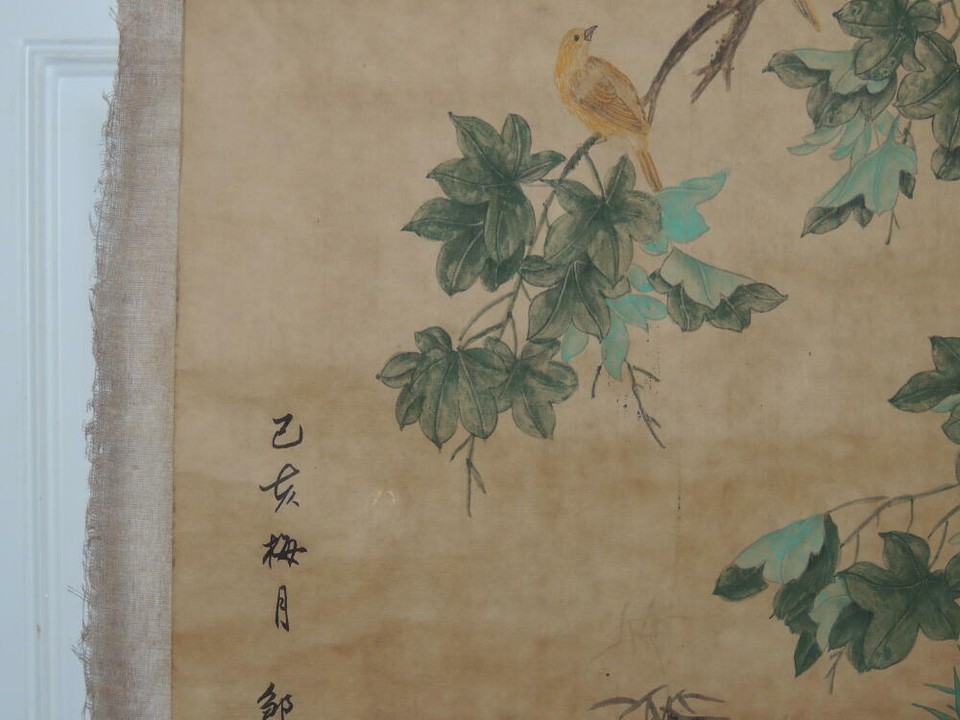 己亥梅月鄒